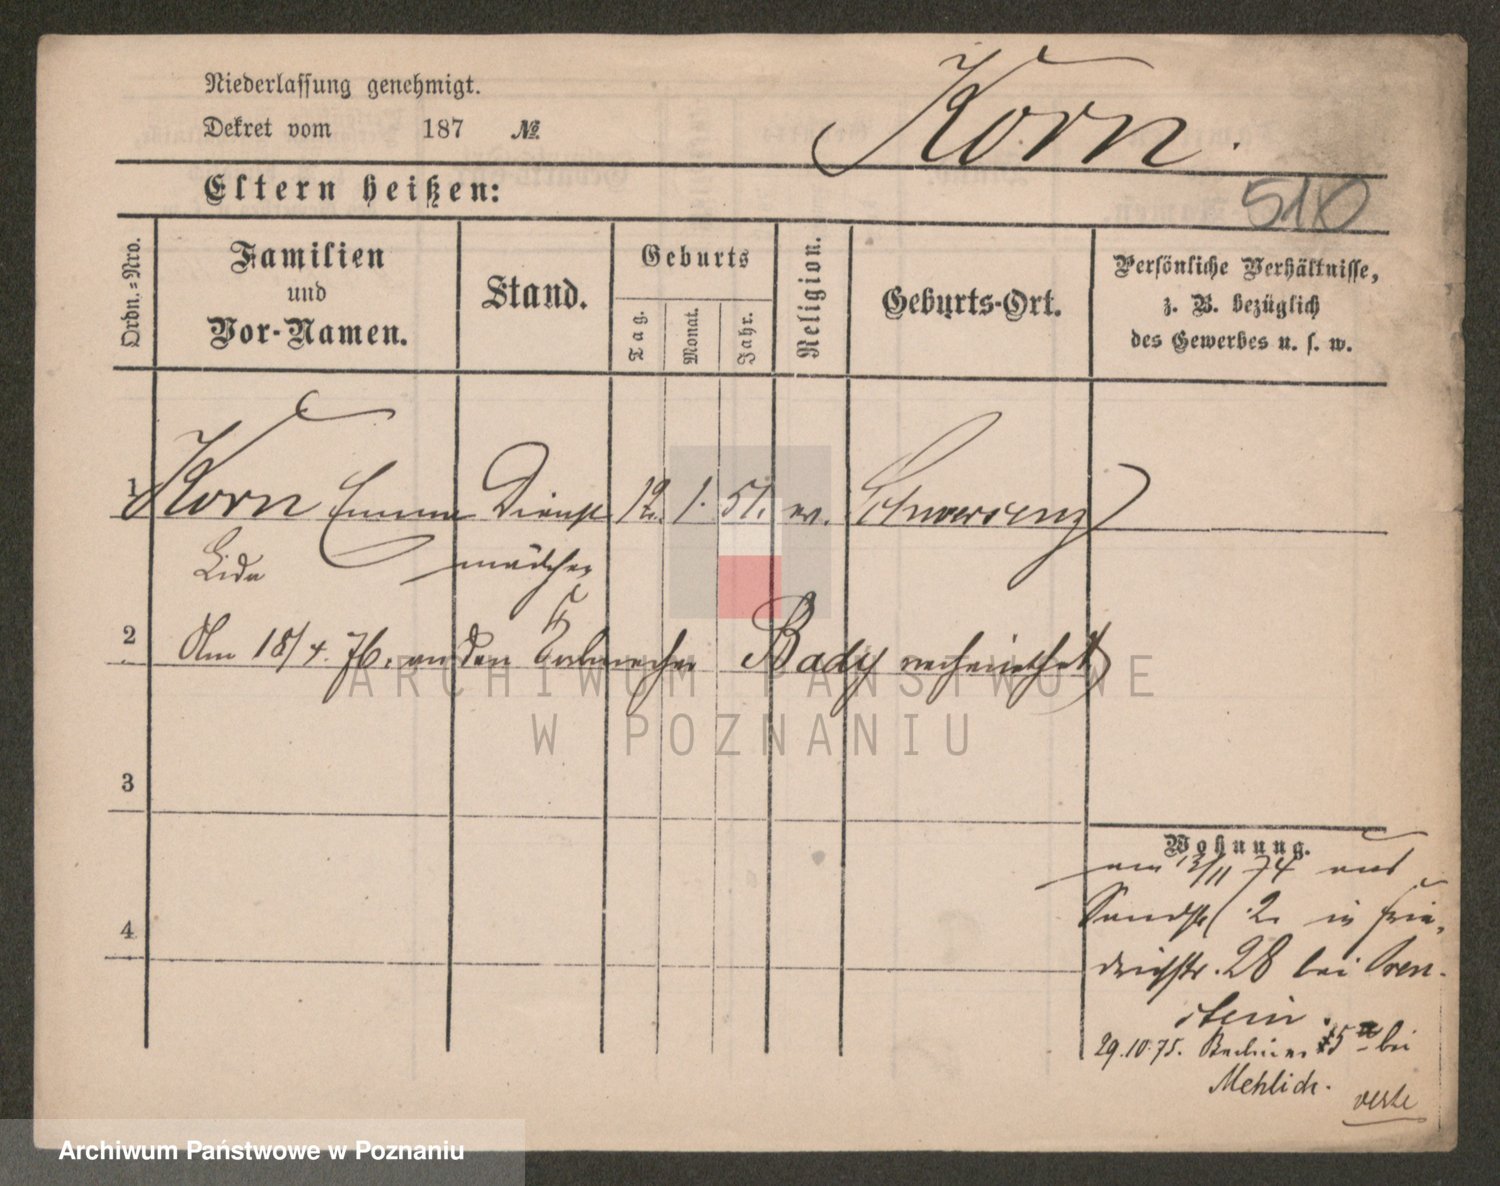 Niederlassung genehmigt.
Dekret vom 187 №
Korn.
Eltern heißen:
510
Ordn.-Nro.
Familien
und
Vor-Namen.
Stand.
Geburts
Tag.
Monat.
Jahr.
Religion.
Geburts-Ort.
Persönliche Verhältnisse,
z. B. bezüglich
des Gewerbes u. s. w.
1 Korn Emma Dienst 12. 1. 51. ev. Schwersenz
Lida mädchen
2 Am 18/4. 76. an den Bady verheirathet
3
4
Wohnung.
am 13/11 74 aus
Sandstr 2. in Frie-
drichstr. 28 bei Oren-
stein.
29.10.75. Berliner 15 bei
Mehlich.
ARCHIWUM PAŃSTWOWE
W POZNANIU
Archiwum Państwowe w Poznaniu